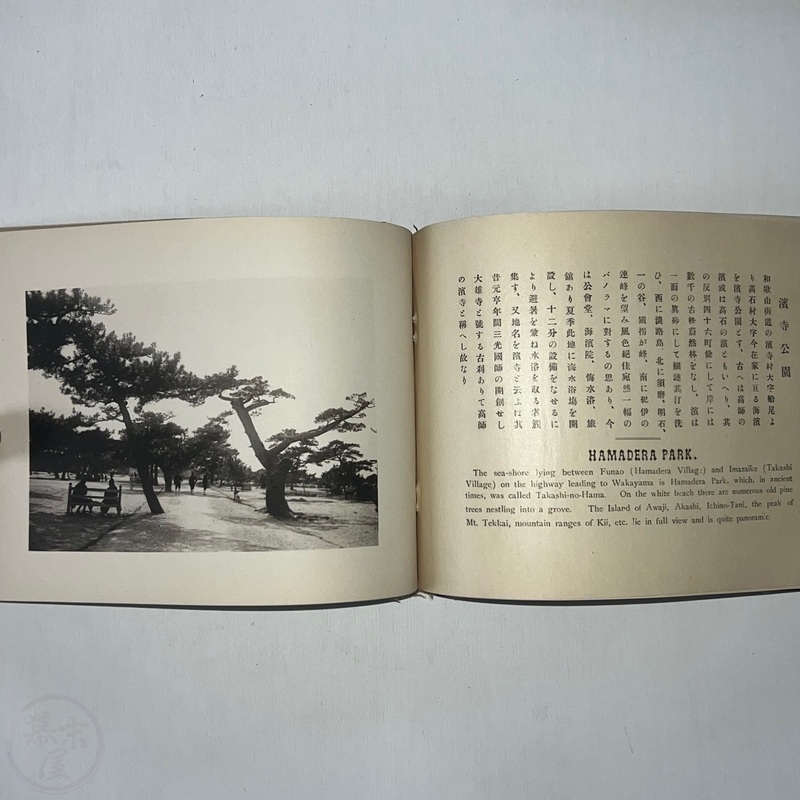 濱寺公園
和歌山街道の濱寺村大字船尾よ
り高石村大字今在家に亘る海濱
を濱寺公園とす、古へは高師の
濱或は高石の濱ともいへり、其
の反別四十六町餘にして岸には
數千の古松蓊然林をなし、濱は
一面の眞砂にして其汀を洗
ひ、西に淡路島 北に須磨、明石、
一の谷、鐵拐が峰、南に紀伊の
連峰を望み風色絕佳宛然一幅の
パノラマに對するの思あり、今
は公會堂、海濱院、海水浴、旅
舘あり夏季此地に海水浴塲を開
設し、十二分の設備をなせるに
より避暑を兼ね水浴を取る者蔟
集す、又地名を濱寺と云ふは其
昔元亨年間三光國師の開創せし
大雄寺と號する古刹ありて高師
の濱寺と稱へし故なり
HAMADERA PARK.
The sea-shore lying between Funao (Hamadera Village) and Imazaike (Takashi
Village) on the highway leading to Wakayama is Hamadera Park, which, in ancient
times, was called Takashi-no-Hama. On the white beach there are numerous old pine
trees nestling into a grove. The Island of Awaji, Akashi, Ichino-Tani, the peak of
Mt. Tekkai, mountain ranges of Kii, etc. lie in full view and is quite panoramic.
幕末屋